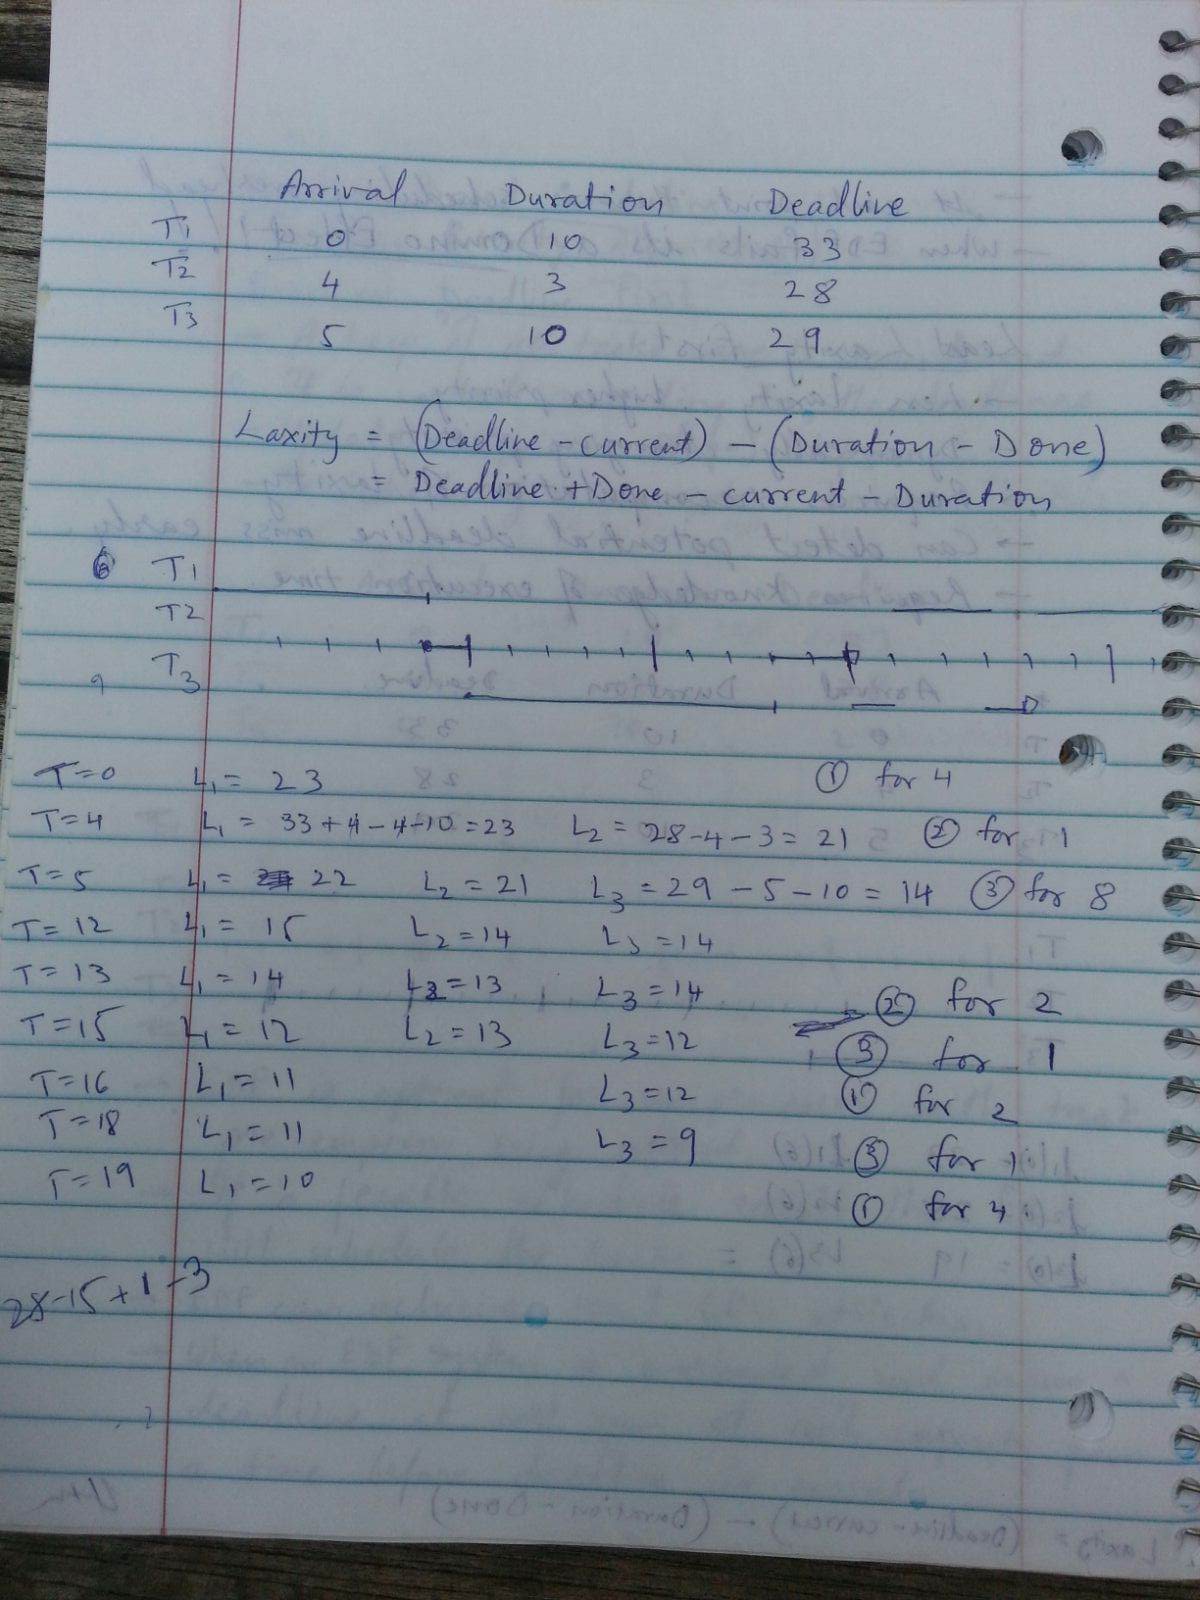 Arrival Duration Deadline
T1 0 10 33
T2 4 3 28
T3 5 10 29
Laxity = (Deadline - current) - (Duration - Done)
= Deadline + Done - current - Duration
T1
T2
T3
9
T=0 L1 = 23 ① for 4
T=4 L1 = 33+4-4-10=23 L2 = 28-4-3= 21 ② for 1
T=5 L1 = 22 L2 = 21 L3 = 29 - 5 - 10 = 14 ③ for 8
T=12 L1 = 15 L2 = 14 L3 = 14
T=13 L1 = 14 L2=13 L3=14 ② for 2
T=15 L1 = 12 L2 = 13 L3=12 ③ for 1
T=16 L1 = 11 L3=12 ① for 2
T=18 L1 = 11 L3 = 9 ③ for 1
T=19 L1 = 10 ① for 4
28-15+1-3